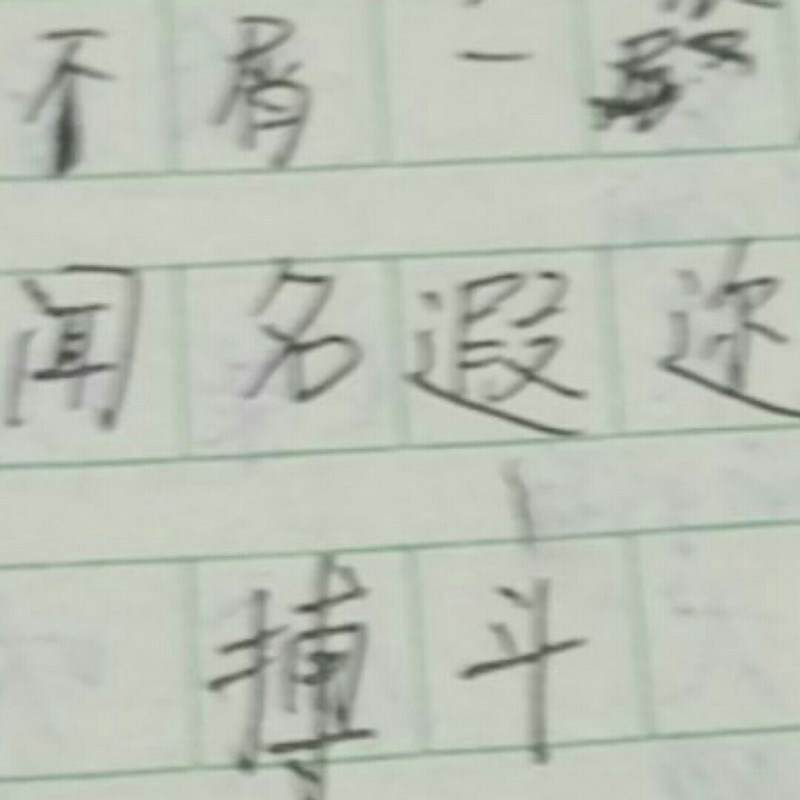 不屑一
闻名遐迩
搏斗